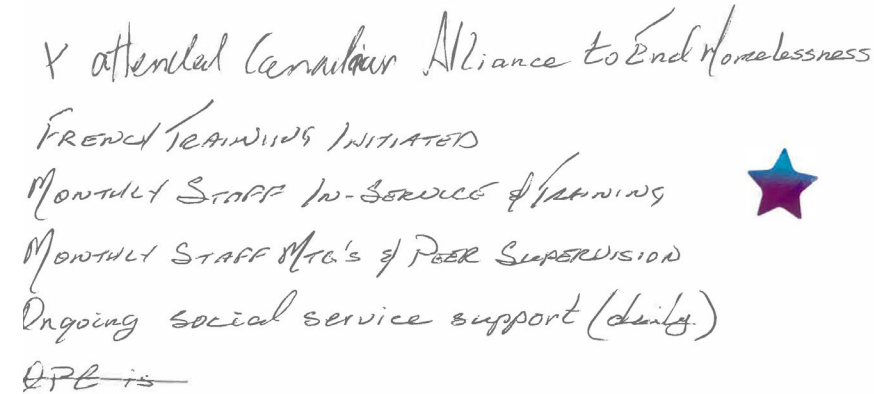 Y attended Canadian Alliance to End Homelessness
FRENCH TRAINING INITIATED
MONTHLY STAFF IN-SERVICE & TRAINING
MONTHLY STAFF MTG'S & PEER SUPERVISION
Ongoing social service support (daily)
OPC is